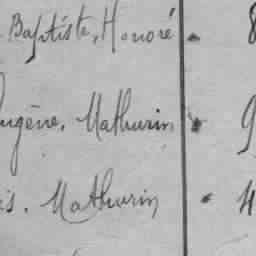 Baptiste, Honoré . 8
Eugène, Mathurin . 9
is, Mathurin . 4